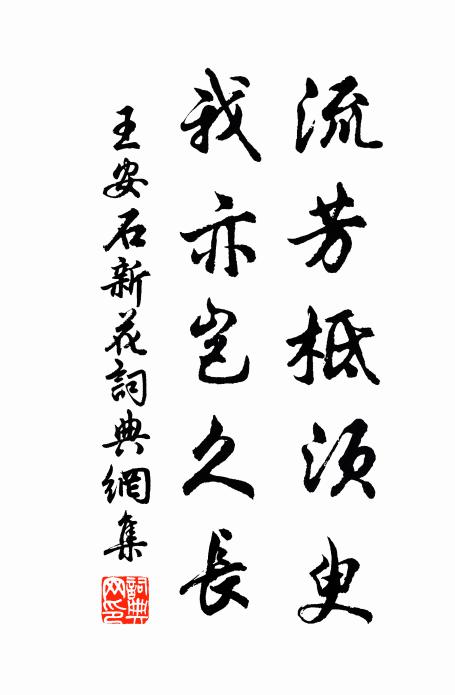 流芳柢須臾
我亦豈久長
王安石新花詞典網集
詞典網印